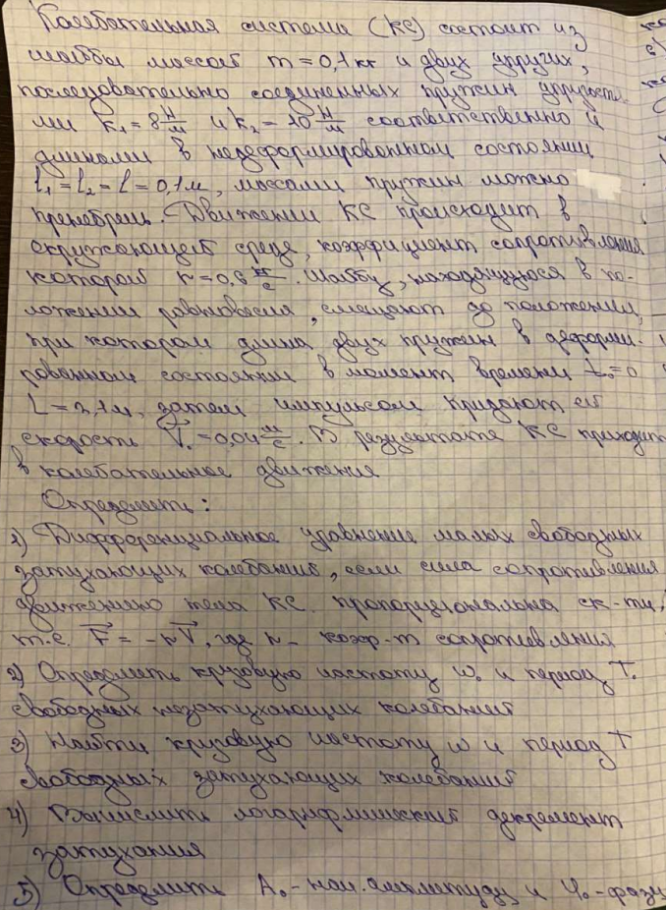 Колебательная система (КС) состоит из
шайбы массой m = 0,1 кг и двух упругих,
последовательно соединенных пружин упругостя-
ми k₁ = 8 Н/м и k₂ = 10 Н/м соответственно и
длинами в недеформированном состоянии
l₁ = l₂ = l = 0,1 м, массами пружин можно
пренебречь. Движении КС происходит в
окружающей среде, коэффициент сопротивления
которой r = 0,6 кг/с. Шайбу, находящуюся в по-
ложении равновесия, смещают до положения,
при котором длина двух пружин в деформи-
рованном состоянии в момент времени t₀ = 0
L = 3,1 м, затем импульсом придают ей
скорость V⃗₀ = 0,04 м/с. В результате КС приходит
в колебательное движения
Определить:
1) Дифференциальное уравнение малых свободных
затухающих колебаний, если сила сопротивления
движению тела КС пропорциональна ск-ти,
т.е. F⃗ = -rV⃗, где r - коэф-т сопротивления
2) Определить круговую частоту ω₀ и период T₀
свободных незатухающих колебаний
3) Найти круговую частоту ω и период T
свободных затухающих колебаний
4) Вычислить логарифмический декремент
затухания
5) Определить A₀ - нач. амплитуду и φ₀ - фазу